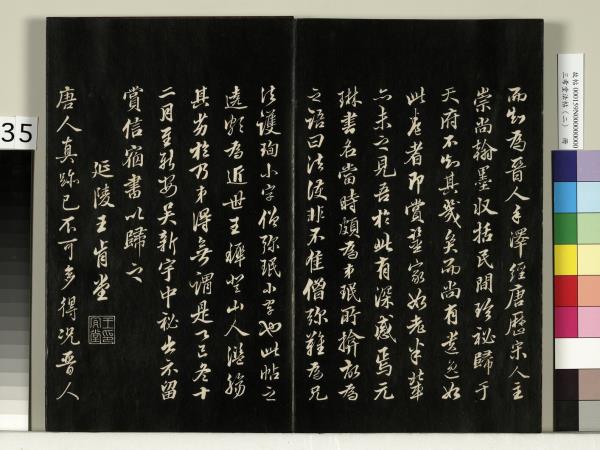 而知為晉人手澤經唐歷宋人主
崇尚翰墨收括民間珍祕歸于
天府不知其幾矣而尚有遺逸如
此卷者即賞鑒家如老米輩
亦未之見吾於此有深感焉元
琳書名當時頗為弟珉所揜故為
之語曰法護非不佳僧彌難為兄
法護珣小字僧彌珉小字也此帖之
遠頗為近世王穉登山人濫觴
其劣於乃弟得無謂是十
二月至新安吳新宇中祕出不留
賞信宿書以歸之
延陵王肯堂
唐人真跡已不可多得況晉人
35
三希堂法帖(二) 冊